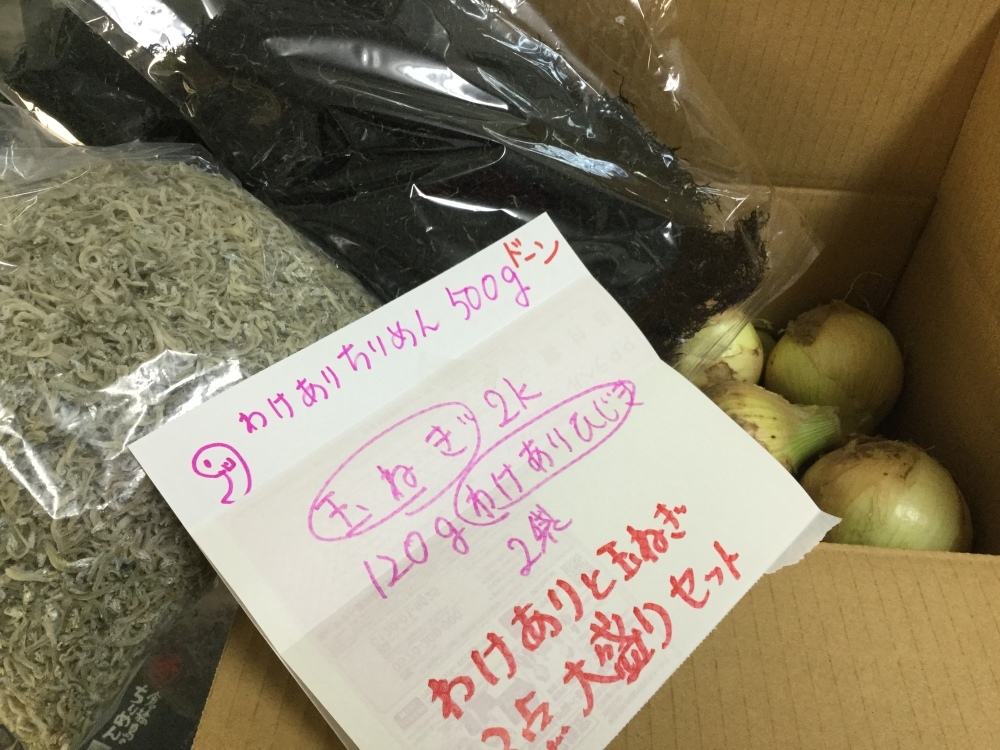 ドーン
わけありちりめん 500g
玉ねぎ 2K
120g わけありひじき
2袋
わけありと玉ねぎ
点 大盛りセット
ちりめん